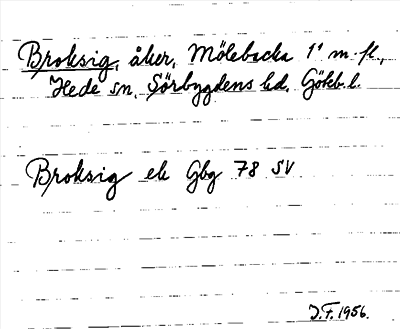 Broksig, åker, Mölebacka 1¹ m.fl.,
Hede sn, Sörbygdens hd. Göteb. l.
Broksig ek Gbg 78 SV
J.F. 1956.